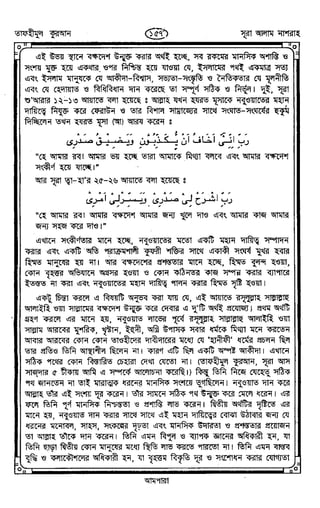 তাফহীমুল কুরআন
১৫৭
সূরা আলাম নাশরাহ
এই উভয় স্থানে বক্ষদেশ উন্মুক্ত করার অর্থই হচ্ছে, সব রকমের মানসিক অশান্তি ও
সংশয় মুক্ত হয়ে একথার ওপর নিশ্চিন্ত হয়ে যাওয়া যে, ইসলামের পথই একমাত্র সত্য
এবং ইসলাম মানুষকে যে আকীদা-বিশ্বাস, সভ্যতা-সংস্কৃতি ও নৈতিকতার যে মূলনীতি
এবং যে হেদায়াত ও বিধিবিধান দান করেছে তা সম্পূর্ণ সঠিক ও নির্ভুল। দুই, সূরা
শু'আরার ১২-১৩ আয়াতে বলা হয়েছে : আল্লাহ যখন হযরত মূসাকে নবুওয়াতের মহান
দায়িত্বে নিযুক্ত করে ফেরাউন ও তার বিশাল সাম্রাজ্যের সাথে সংঘাত-সংঘর্ষের হুকুম
দিচ্ছিলেন তখন হযরত মূসা (আ) আরয করেন :
رَبِّ إِنِّي أَخَافُ أَنْ يُكَذِّبُونِ وَيَضِيقُ صَدْرِي
"হে আমার রব! আমার ভয় হচ্ছে তারা আমাকে মিথ্যা বলবে এবং আমার বক্ষদেশ
সংকীর্ণ হয়ে যাচ্ছে।"
আর সূরা ত্বা-হা'র ২৫-২৬ আয়াতে বলা হয়েছে :
رَبِّ اشْرَحْ لِي صَدْرِي وَيَسِّرْ لِي أَمْرِي
"হে আমার রব! আমার বক্ষদেশ আমার জন্য খুলে দাও এবং আমার কাজ আমার
জন্য সহজ করে দাও।"
এখানে সংকীর্ণতার মানে হচ্ছে, নবুওয়াতের মতো একটি মহান দায়িত্ব সম্পাদন
করার এবং একটি অতি পরাক্রমশালী কুফরী শক্তির সাথে একাকী সংঘর্ষ মুখর হবার
হিম্মত মানুষের হয় না। আর বক্ষদেশের প্রশস্ততার মানে হচ্ছে, হিম্মত বুলন্দ হওয়া,
কোন বৃহত্তর অভিযানে অগ্রসর হওয়া ও কোন কঠিনতর কাজ সম্পন্ন করার ব্যাপারে
ইতস্তত না করা এবং নবুওয়াতের মহান দায়িত্ব পালন করার হিম্মত সৃষ্টি হওয়া।
একটু চিন্তা করলে এ বিষয়টি অনুভব করা যায় যে, এই আয়াতে রসূলুল্লাহ সাল্লাল্লাহু
আলাইহি ওয়া সাল্লামের বক্ষদেশ উন্মুক্ত করে দেবার এ দু'টি অর্থই প্রযোজ্য। প্রথম অর্থটি
গ্রহণ করলে এর মানে হয়, নবুওয়াত লাভের পূর্বে রসূলুল্লাহ সাল্লাল্লাহু আলাইহি ওয়া
সাল্লাম আরবের মুশরিক, খৃষ্টান, ইহুদী, অগ্নি উপাসক সবার ধর্মকে মিথ্যা মনে করতেন
আবার আরবের কোন কোন তাওহীদের দাবীদারের মধ্যে যে 'হানীফী' ধর্মের প্রচলন ছিল
তার প্রতিও তিনি আস্থাশীল ছিলেন না। কারণ এটি ছিল একটি অস্পষ্ট আকীদা। এখানে
সঠিক পথের কোন বিস্তারিত চেহারা দেখা যেতো না। (তাফহীমুল কুরআন, সূরা আস
সাজদার ৫ টীকায় আমি এ সম্পর্কে আলোচনা করেছি।) কিন্তু তিনি নিজে যেহেতু সঠিক
পথ জানতেন না তাই মারাত্মক ধরনের মানসিক সংশয়ে ভুগছিলেন। নবুওয়াত দান করে
আল্লাহ তাঁর এই সংশয় দূর করেন। তাঁর সামনে সঠিক পথ উন্মুক্ত করে মেলে ধরেন। এর
ফলে তিনি পূর্ণ মানসিক নিশ্চিন্ততা ও প্রশান্তি লাভ করেন। দ্বিতীয় অর্থটির দৃষ্টিতে এর
মানে হয়, নবুওয়াত দান করার সাথে সাথে এই মহান দায়িত্বের বোঝা উঠাবার জন্য যে
ধরনের মনোবল, সাহস, সংকল্পের দৃঢ়তা এবং মানসিক উদারতা ও প্রশস্ততার প্রয়োজন
তা আল্লাহ তাঁকে দান করেন। তিনি এমন বিপুল ও ব্যাপক জ্ঞানের অধিকারী হন, যা
তিনি ছাড়া দ্বিতীয় কোন মানুষের মধ্যে স্থিতি লাভ করতে পারতো না। তিনি এমন বাস্তব
বুদ্ধি ও কলাকৌশলের অধিকারী হন, যা বৃহত্তম বিকৃতি দূর ও সংশোধন করার যোগ্যতা
আমপারা